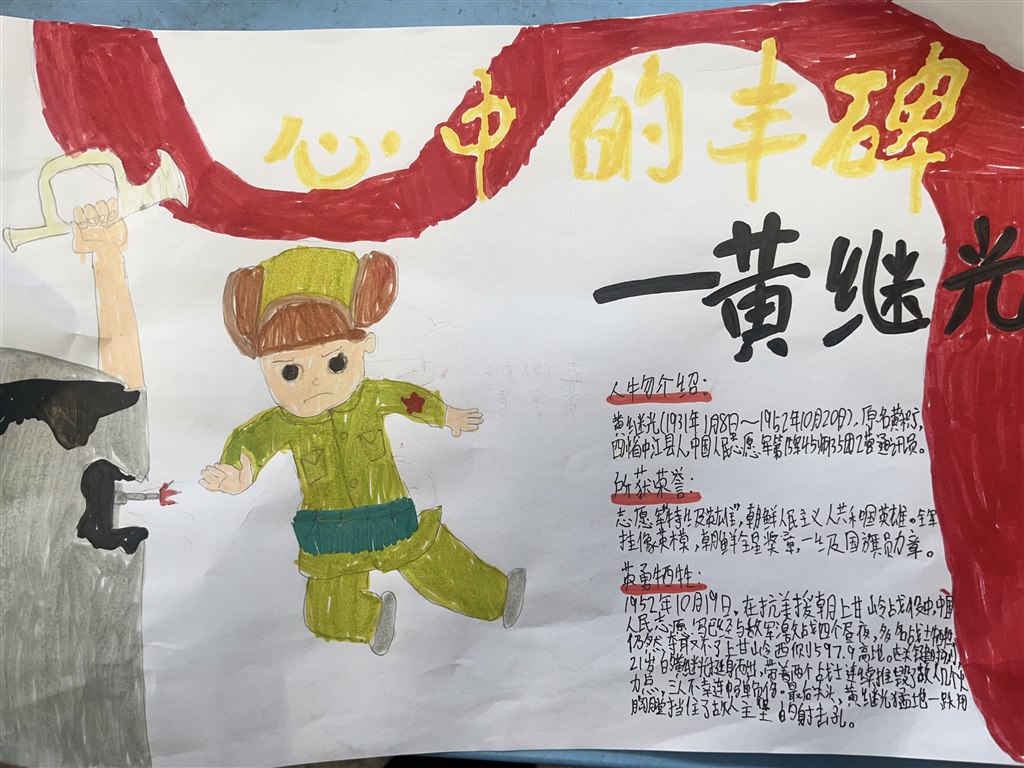 心中的丰碑
一黄继光
人物介绍:
黄继光(1931年1月8日～1952年10月20日).原名黄积厅,
四川省中江县人,中国人民志愿军第15军45师135团2营通讯员。
所获荣誉:
志愿军"特级战斗英雄",朝鲜人民主义人共和国英雄。全军
挂像英模,朝鲜金星奖章,一级国旗勋章。
英勇牺牲:
1952年10月19日,在抗美援朝上甘岭战役中,中国
人民志愿军已经与敌军激战四个昼夜,多名战士牺牲,
仍然夺取不了上甘岭西侧597.9高地。关键时刻,
21岁的黄继光挺身而出,带着两个战士连续摧毁了敌人几个火
力点,三人不幸连中弹负伤。最后关头,黄继光猛地一跃用
胸膛挡住了敌人主堡的射击孔。